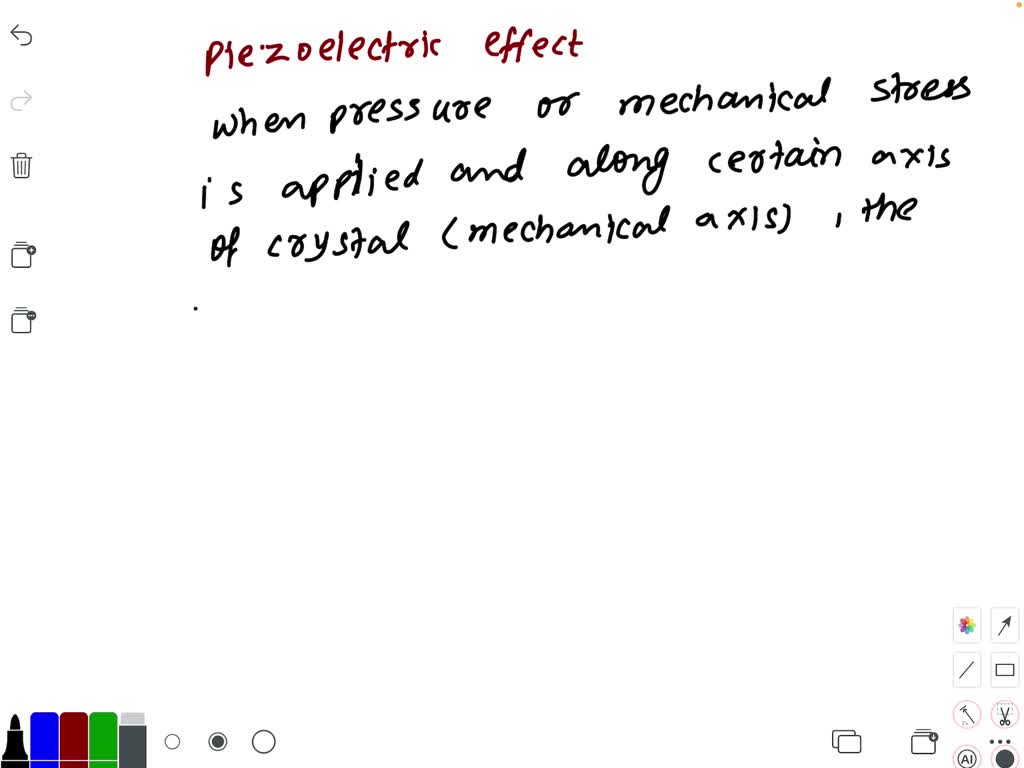 Piezoelectric effect
when pressure or mechanical stress
is applied and along certain axis
of crystal (mechanical axis), the
AI